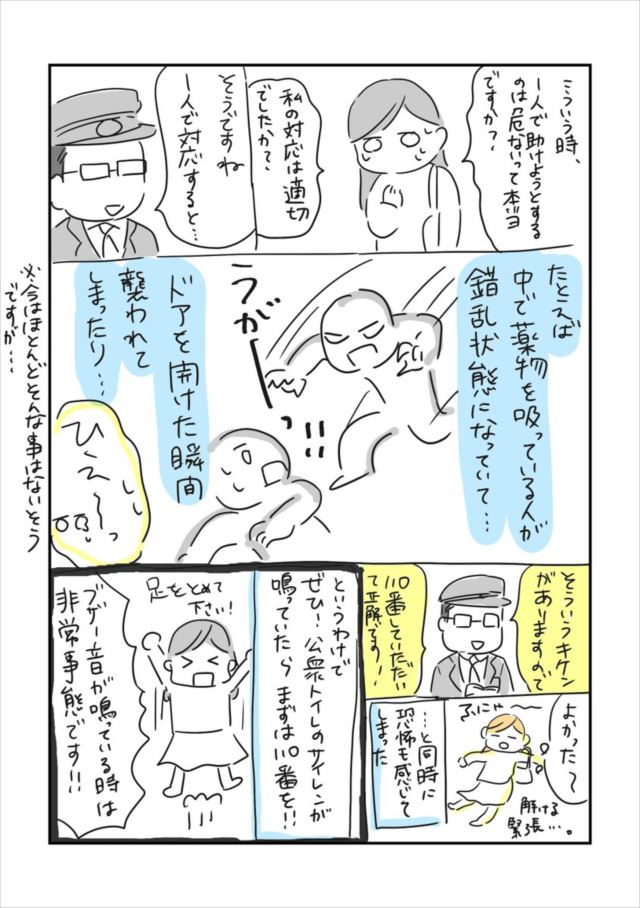 こういう時、
1人で助けようとする
のは危ないって本当
ですか？
私の対応は適切
でしたか？
そうですね
1人で対応すると…
たとえば
中で薬物を吸っている人が
錯乱状態になっていて…
うがーっ!!
ドアを開けた瞬間
襲われて
しまったり…
ひえ〜っ
※今はほとんどそんな事はないそう
ですが…
そういうキケン
がありますので
110番していただい
て正解です！
よかった〜
ふにゃ〜
解ける
緊張…。
…と同時に
恐怖も感じて
しまった
というわけで
ぜひ！公衆トイレのサイレンが
鳴っていたらまずは110番を!!
足をとめて
下さい！
ブザー音が鳴っている時は
非常事態です!!